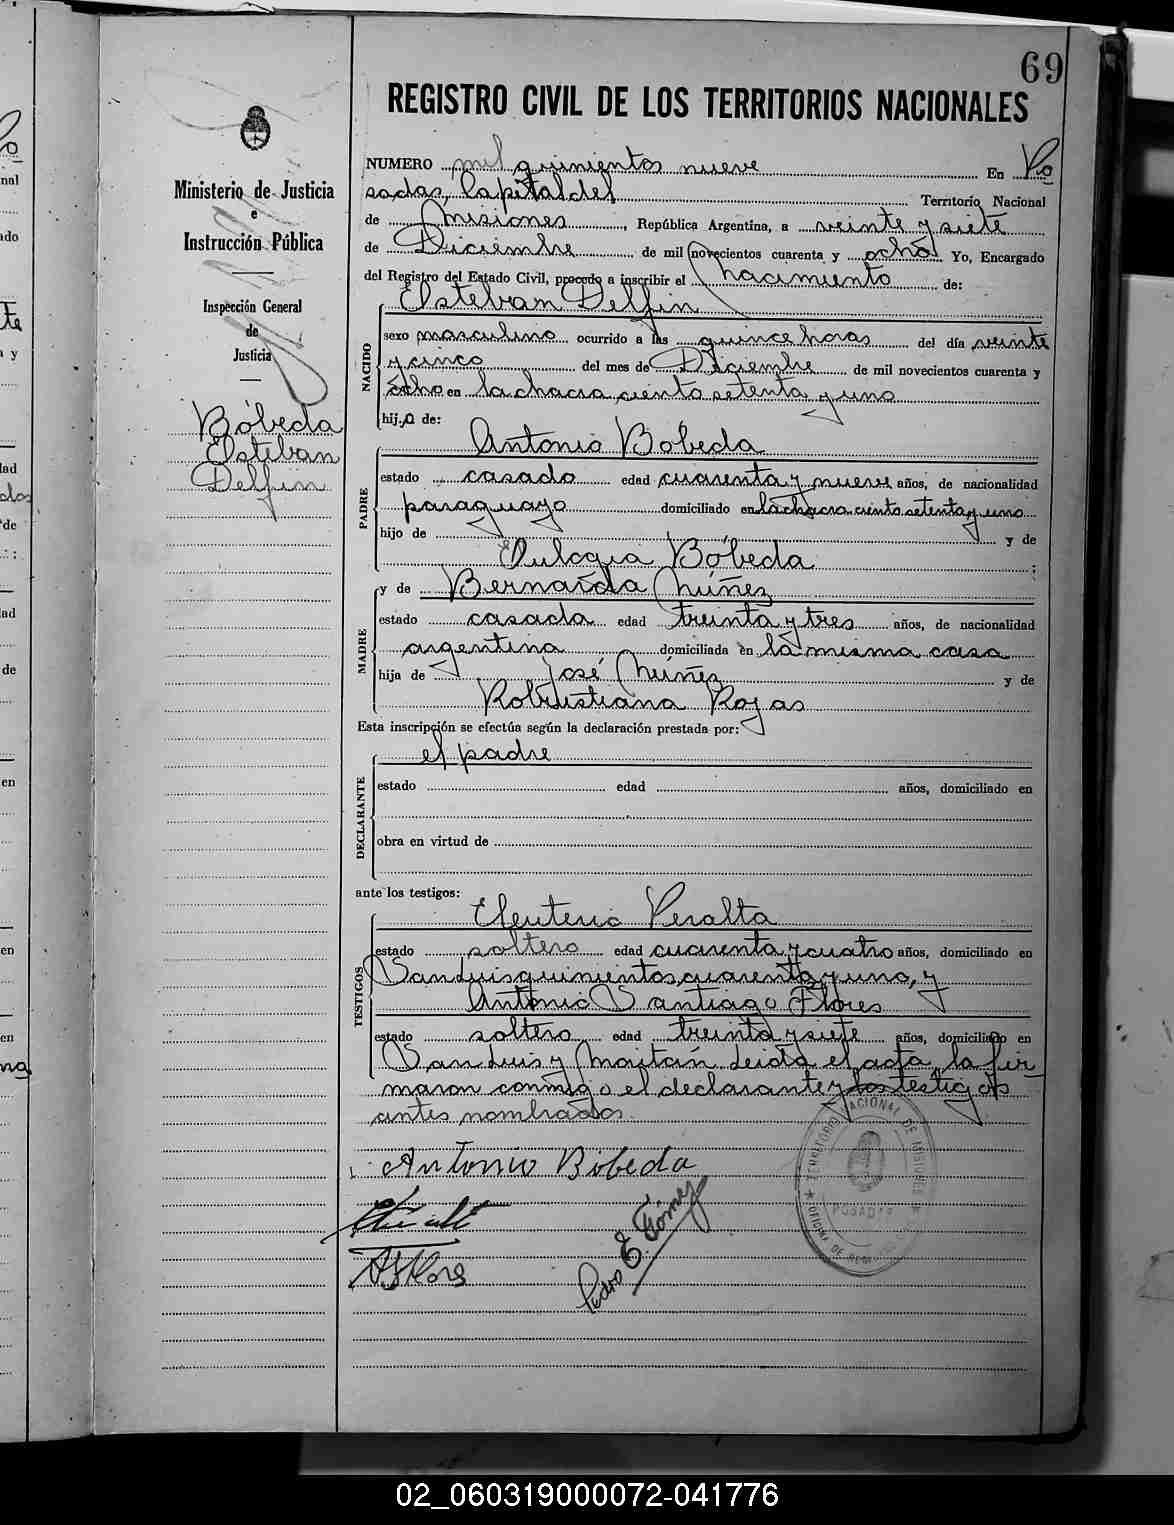 69
REGISTRO CIVIL DE LOS TERRITORIOS NACIONALES
Ministerio de Justicia
e
Instrucción Pública
Inspección General
de
Justicia
Bóbeda
Esteban
Delfin
NUMERO mil quinientos nueve En Po
sadas, Capital del Territorio Nacional
de Misiones, República Argentina, a veinte y siete
de Diciembre de mil novecientos cuarenta y ocho Yo, Encargado
del Registro del Estado Civil, procedo a inscribir el nacimiento de:
Esteban Delfin
NACIDO
sexo masculino ocurrido a las quince horas del día veinte
y cinco del mes de Diciembre de mil novecientos cuarenta y
ocho en la chacra ciento setenta y uno
hijo de:
Antonio Bóbeda
PADRE
estado casado edad cuarenta y nueve años, de nacionalidad
paraguayo domiciliado en la chacra ciento setenta y uno
hijo de y de
Eulogia Bóbeda
y de Bernarda Núñez
MADRE
estado casada edad treinta y tres años, de nacionalidad
argentina domiciliada en la misma casa
hija de José Núñez y de
Robustiana Rojas
Esta inscripción se efectúa según la declaración prestada por:
el padre
DECLARANTE
estado edad años, domiciliado en
obra en virtud de
ante los testigos:
Eleuterio Peralta
TESTIGOS
estado soltero edad cuarenta y cuatro años, domiciliado en
San Luis quinientos cuarenta y uno, y
Antonio Santiago Flores
estado soltero edad treinta y siete años, domiciliado en
San Luis y Maitan Leida el acta, la fir
maron conmigo el declarante y los testigos
antes nombrados.
Antonio Bóbeda
Pedro E. Gómez
TERRITORIO NACIONAL DE MISIONES
POSADAS
OFICINA DE REGISTRO
02_060319000072-041776